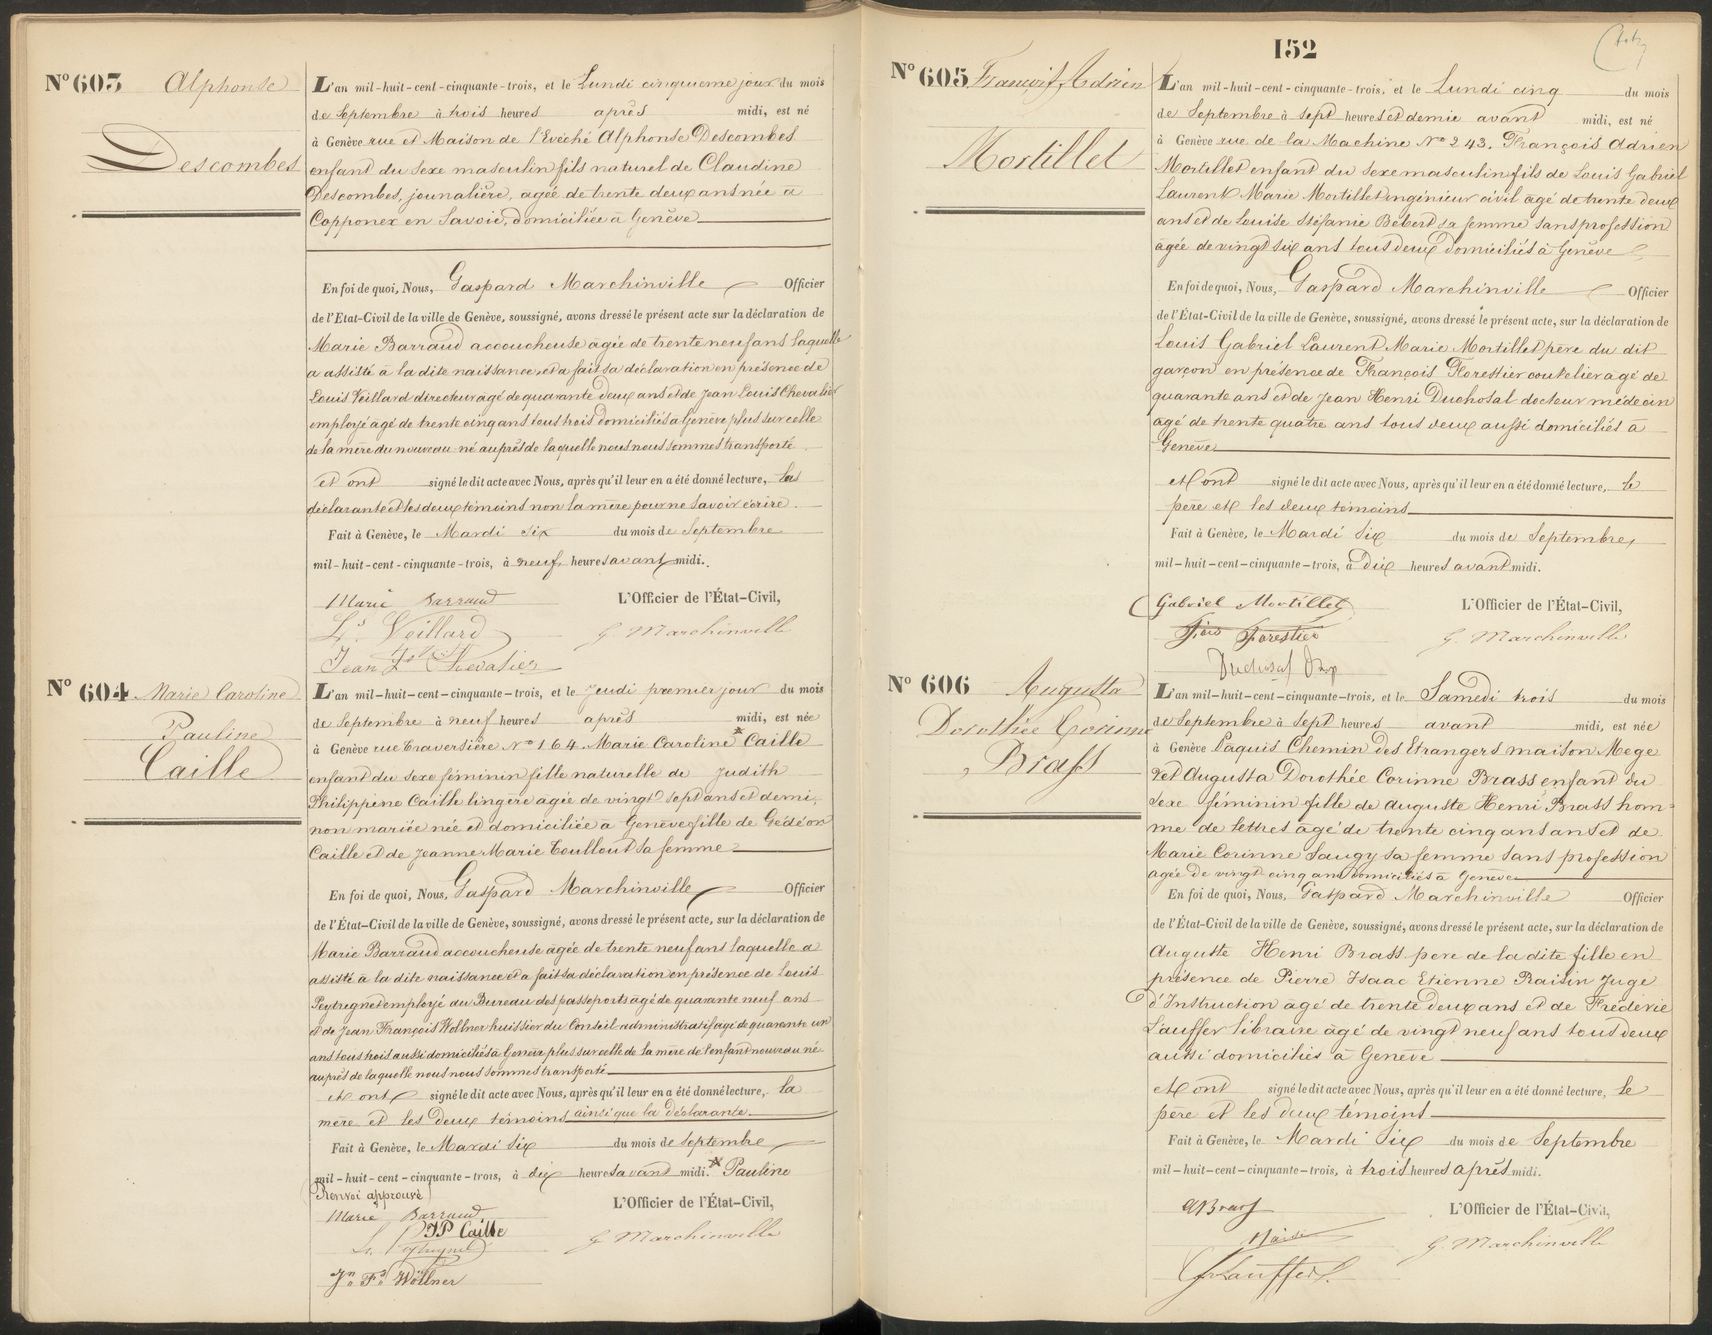 Nº 603 Alphonse
Descombes
L'an mil-huit-cent-cinquante-trois, et le Lundi cinquieme jour du mois
de Septembre à trois heures après midi, est né
à Genève rue et Maison de l'Evêché Alphonse Descombes
enfant du sexe masculin fils naturel de Claudine
Descombes, journalière, agée de trente deux ans née a
Copponex en Savoie, domiciliée à Genève
En foi de quoi, Nous, Gaspard Marchinville Officier
de l'Etat-Civil de la ville de Genève, soussigné, avons dressé le présent acte sur la déclaration de
Marie Barraud accoucheuse agée de trente neuf ans laquelle
a assisté à la dite naissance et a fait sa déclaration en présence de
Louis Veillard directeur agé de quarante deux ans et de Jean Louis Chevalier
employé agé de trente cinq ans tous trois domiciliés à Genève plus sur celle
de la mère du nouveau né auprès de laquelle nous nous sommes transporté
et ont signé le dit acte avec Nous, après qu'il leur en a été donné lecture, la
déclarante et les deux témoins non la mère pour ne savoir écrire.
Fait à Genève, le Mardi six du mois de Septembre
mil-huit-cent-cinquante-trois, à neuf heures avant midi.
Marie Barraud L'Officier de l'État-Civil,
Ls Veillard G. Marchinville
Jean Ls Chevalier
Nº 604 Marie Caroline
Pauline
Caille
L'an mil-huit-cent-cinquante-trois, et le Jeudi premier jour du mois
de Septembre à neuf heures après midi, est née
à Genève rue Traversière Nº 164 Marie Caroline* Caille
enfant du sexe féminin fille naturelle de Judith
Philippine Caille lingère agée de vingt sept ans et demi,
non mariée née et domiciliée à Genève fille de Gédéon
Caille et de Jeanne Marie Toullout sa femme
En foi de quoi, Nous, Gaspard Marchinville Officier
de l'État-Civil de la ville de Genève, soussigné, avons dressé le présent acte, sur la déclaration de
Marie Barraud accoucheuse agée de trente neuf ans laquelle a
assisté à la dite naissance et a fait sa déclaration en présence de Louis
Peytregnet employé du Bureau des passeports agé de quarante neuf ans
et de Jean François Wollner huissier du Conseil administratif agé de quarante un
ans tous trois aussi domiciliés à Genève plus sur celle de la mère de l'enfant nouveau né
auprès de laquelle nous nous sommes transporté
et ont signé le dit acte avec Nous, après qu'il leur en a été donné lecture, la
mère et les deux témoins ainsi que la déclarante
Fait à Genève, le Mardi Six du mois de Septembre
mil-huit-cent-cinquante-trois, à dix heures avant midi. * Pauline
Renvoi approuvé
Marie Barraud L'Officier de l'État-Civil,
JP Caille
L. Peytregnet G. Marchinville
Jn Fs Wöllner
152
Nº 605 François Adrien
Mortillet
L'an mil-huit-cent-cinquante-trois, et le Lundi cinq du mois
de Septembre à sept heures et demie avant midi, est né
à Genève rue de la Machine Nº 243. François Adrien
Mortillet enfant du sexe masculin fils de Louis Gabriel
Laurent Marie Mortillet ingénieur civil agé de trente deux
ans et de Louise Stéfanie Bebert sa femme sans profession
agée de vingt six ans tous deux domiciliés à Genève
En foi de quoi, Nous, Gaspard Marchinville Officier
de l'État-Civil de la ville de Genève, soussigné, avons dressé le présent acte, sur la déclaration de
Louis Gabriel Laurent Marie Mortillet père du dit
garçon en présence de François Florestier coutelier agé de
quarante ans et de Jean Henri Duchosal docteur médecin
agé de trente quatre ans tous deux aussi domiciliés à
Genève
et ont signé le dit acte avec Nous, après qu'il leur en a été donné lecture, le
père et les deux témoins
Fait à Genève, le Mardi Six du mois de Septembre,
mil-huit-cent-cinquante-trois, à dix heures avant midi.
Gabriel Mortillet L'Officier de l'État-Civil,
Forestier G. Marchinville
Duchosal
Nº 606 Augusta
Dorothée Corinne
Brass
L'an mil-huit-cent-cinquante-trois, et le Samedi trois du mois
de Septembre à Sept heures avant midi, est née
à Genève Paquis Chemin des Etrangers maison Mege
Augusta Dorothée Corinne Brass enfant du
Sexe féminin fille de Auguste Henri Brass hom=
me de lettres agé de trente cinq ans ans et de
Marie Corinne Saugy sa femme sans profession
agée de vingt cinq ans domiciliés à Genève
En foi de quoi, Nous, Gaspard Marchinville Officier
de l'État-Civil de la ville de Genève, soussigné, avons dressé le présent acte, sur la déclaration de
Auguste Henri Brass pere de la dite fille en
présence de Pierre Isaac Etienne Raisin Juge
d'Instruction agé de trente deux ans et de Frédéric
Lauffer libraire agé de vingt neuf ans tous deux
aussi domiciliés à Genève
et ont signé le dit acte avec Nous, après qu'il leur en a été donné lecture, le
père et les deux témoins
Fait à Genève, le Mardi Six du mois de Septembre
mil-huit-cent-cinquante-trois, à trois heures après midi.
A Brass L'Officier de l'État-Civil,
Raisin G. Marchinville
Lauffer